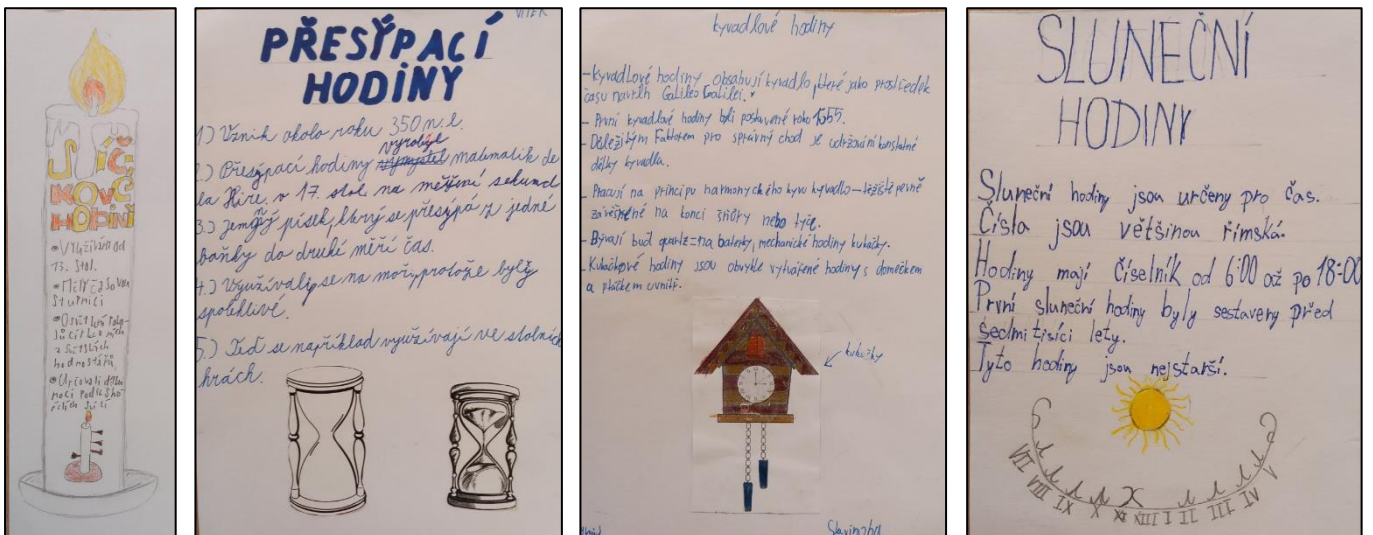 SVÍČ-
KOVÉ
HODINY
• VYUŽÍVÁNY OD
13. Stol.
VÍTEK
PŘESÝPACÍ
HODINY
1.) Vznik okolo roku 350 n. l.
vyrobyl
2.) Přesýpací hodiny vymyslel matematik de
la Hire, v 17. stol. na měření sekund
3.) Jemný písek, který se přesýpá z jedné
baňky do druhé měří čas.
4.) Využívali se na moři, protože byly
spolehlivé.
5.) Teď se například využívají ve stolních
hrách.
kyvadlové hodiny
- Kyvadlové hodiny obsahují kyvadlo, které jako prostředek
času navrhl Galileo Galilei.
- První kyvadlové hodiny byli postavené roku 1655.
- Důležitým faktorem pro správný chod je udržování konstatné
délky kyvadla.
- Pracují na principu harmonyckého kyvu kyvadlo – těžiště pevně
zavěšené na konci šňůry nebo tyče.
- Bývají buď quartz = na baterky, mechanické hodiny kukačky.
- Kukačkové hodiny jsou obvykle vyřezávané hodiny s domečkem
a ptáčkem uvnitř.
kukačky
SLUNEČNÍ
HODINY
Sluneční hodiny jsou určeny pro čas.
Čísla jsou většinou římská.
Hodiny mají číselník od 6:00 až po 18:00
První sluneční hodiny byly sestaveny před
sedmi tisíci lety.
Tyto hodiny jsou nejstarší.
VII VIII IX X XI XIII I II III IV V